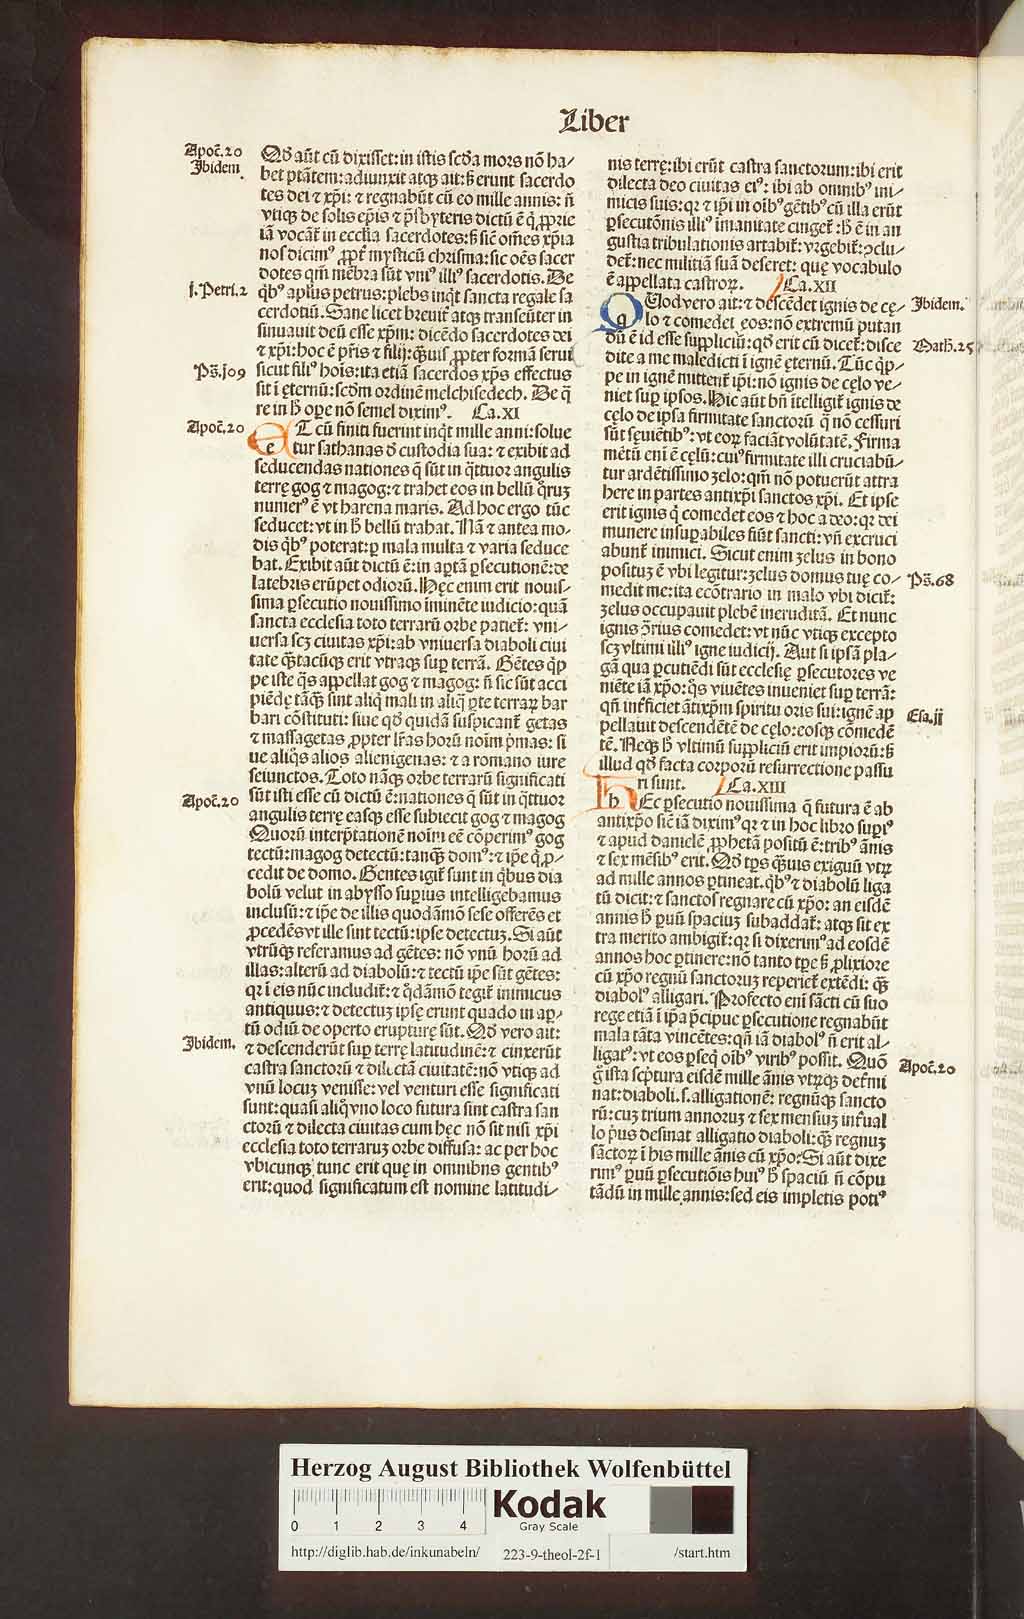 Liber
Apoc̄.20
Ibidem.
Qđ aūt cū dixisset: in istis scđa mors nō ha-
bet ptātem: adiunxit atqꝫ ait: sꝫ erunt sacerdo
tes dei ⁊ xp̄i: ⁊ regnabūt cū eo mille annis: nō
vtiqꝫ de solis ep̄is ⁊ p̄sbyteris dictū ē q̇ ꝓprie
iā vocāt̄ in ecclīa sacerdotes: sꝫ sic̄ om̄es xp̄ia
nos dicimꝰ ꝓpt̄ mysticū chrisma: sic oēs sacer
dotes qm̄ mēbra sūt vniꝰ illiꝰ sacerdotis. De
j. Petri.2
qͥbꝰ apl̄us petrus: plebs inqͥt sancta regale sa
cerdotiū. Sane licet breuit̄ atqꝫ transeūter in
sinuauit deū esse xp̄m: dicēdo sacerdotes dei
⁊ xp̄i: hoc ē pr̄is ⁊ filij: qͣꝫuis ꝓpter formā serui
Ps̄.j09
sicut filiꝰ hoīs: ita etiā sacerdos xp̄s effectus
sit ī ęternū: scđm ordinē melchisedech. De q̄
re in hꝫ oꝑe nō semel diximꝰ. Ca.XI
Apoc̄.20
ET cū finiti fuerint inqͥt mille anni: solue
tur sathanas đ custodia sua: ⁊ exibit ad
seducendas nationes q̄ sūt in qͣttuor angulis
terrę gog ⁊ magog: ⁊ trahet eos in bellū qͦruꝫ
numerꝰ ē vt harena maris. Ad hoc ergo tūc
seducet: vt in hꝫ bellū trahat. Nā ⁊ antea mo-
dis qͥbꝰ poterat: ꝑ mala multa ⁊ varia seduce
bat. Exibit aūt dictū ē: in aꝑtā ꝑsecutionē: de
latebris erūpet odiorū. Hęc enim erit nouis-
sima ꝑsecutio nouissimo imminēte iudicio: quā
sancta ecclesia toto terrarū orbe patiet̄: vni-
uersa scꝫ ciuitas xp̄i: ab vniuersa diaboli ciui
tate qͣꝫtacūqꝫ erit vtraqꝫ suꝑ terrā. Gētes qͥp
pe iste qͣs appellat gog ⁊ magog: n̄ sic sūt acci
piēdę tāqͣꝫ sint aliqͥ mali in aliqͣ ꝑte terraꝝ bar
bari cōstituti: siue qđ quidā suspicant̄ getas
⁊ massagetas ꝓpter lr̄as horū noīm pͥmas: si
ue aliqͦs alios alienigenas: ⁊ a romano iure
seiunctos. Toto nāqꝫ orbe terrarū significati
Apoc̄.20
sūt isti esse cū dictū ē: nationes q̄ sūt in qͣttuor
angulis terrę easqꝫ esse subiecit gog ⁊ magog
Quorū interp̄tationē noīm eē cōperimꝰ gog
tectū: magog detectū: tanqͣꝫ domꝰ: ⁊ ip̄e q̇ ꝓ-
cedit de domo. Gentes igit̄ sunt in qͥbus dia
bolū velut in abysso suꝑius intelligebamus
inclusū: ⁊ ip̄e de illis quodāmō sese offerēs et
ꝓcedēs vt ille sint tectū: ipse detectuꝫ. Si aūt
vtrūqꝫ referamus ad gētes: nō vnū horū ad
illas: alterū ad diabolū: ⁊ tectū ip̄e sūt gētes:
qꝛ ī eis nūc includit̄: ⁊ qͦdāmō tegit̄ inimicus
antiquus: ⁊ detectuꝫ ipsę erunt quādo in aꝑ-
tū odiū de operto erupturę sūt. Qđ vero ait:
Ibidem.
⁊ descenderūt suꝑ terrę latitudinē: ⁊ cinxerūt
castra sanctorū ⁊ dilectā ciuitatē: nō vtiqꝫ ad
vnū locuꝫ venisse: vel venturi esse significati
sunt: quasi aliqͦ vno loco futura sint castra san
ctorū ⁊ dilecta ciuitas cum hęc nō sit nisi xp̄i
ecclesia toto terraruꝫ orbe diffusa: ac per hoc
vbicunqꝫ tunc erit quę in omnibns gentibꝰ
erit: quod significatum est nomine latitudi-
nis terrę: ibi erūt castra sanctorum: ibi erit
dilecta deo ciuitas eiꝰ: ibi ab omnibꝰ ini-
micis suis: qꝛ ⁊ ip̄i in oībꝰ gētibꝰ cū illa erūt
ꝑsecutōnis illiꝰ īmanitate cinget̄: hꝫ ē in an
gustia tribulationis artabit̄: vrgebit̄: ꝯclu-
det̄: nec militiā suā deseret: quę vocabulo
ē appellata castroꝝ. Ca.XII
QUod vero ait: ⁊ descēdet ignis de cę-
Ibidem.
lo ⁊ comedet eos: nō extremū putan
dū ē id esse suppliciū: qđ erit cū dicet̄: disce
Math̄.25
dite a me maledicti ī ignē ęternū. Tūc qͥp-
pe in ignē mittent̄ ip̄i: nō ignis de cęlo ve-
niet suꝑ ipsos. Hic aūt bn̄ ītelligit̄ ignis de
cęlo de ipsa firmitate sanctorū q̄ nō cessuri
sūt sęuiētibꝰ: vt eoꝝ faciāt volūtatē. Firma
mētū eni ē cęlū: cuiꝰ firmitate illi cruciabū-
tur ardētissimo zelo: qm̄ nō potuerūt attra
here in partes antixp̄i sanctos xp̄i. Et ipse
erit ignis q̇ comedet eos ⁊ hoc a deo: qꝛ dei
munere insuꝑabiles fiūt sancti: vn̄ excruci
abunt̄ inimici. Sicut enim zelus in bono
Ps̄.68
posituꝫ ē vbi legitur: zelus domus tuę co-
medit me: ita ecōtrario in malo vbi dicit̄:
zelus occupauit plebē ineruditā. Et nunc
ignis ꝯ̄rius comedet: vt nūc vtiqꝫ excepto
scꝫ vltimi illiꝰ igne iudicij. Aut si ipsā pla-
gā qua ꝑcutiēdi sūt ecclesię ꝑsecutores ve
niēte iā xp̄o: qͦs viuētes inueniet suꝑ terrā:
qn̄ inficiet āntixp̄m spiritu oris sui: ignē ap
Esa.ij
pellauit descendētē de cęlo: eosqꝫ comedē
tē. Neqꝫ hꝫ vltimū suppliciū erit impiorū: sꝫ
illud qđ facta corporū resurrectione passu
ri sunt. Ca.XIII
HEc ꝑsecutio nouissima q̄ futura ē ab
antixp̄o sic̄ iā diximꝰ qꝛ ⁊ in hoc libro supͥꝰ
⁊ apud danielē ꝓphetā positū ē: tribꝰ ānis
⁊ sex mēsibꝰ erit. Qđ tp̄s qͣꝫuis exiguū vtꝝ
ad mille annos ꝑtineat. qͥbꝰ ⁊ diabolū liga
tū dicit: ⁊ sanctos regnare cū xp̄o: an eisdē
annis hꝫ ꝑuū spaciuꝫ subaddat̄: atqꝫ sit ex
tra merito ambigit̄: qꝛ si dixerimꝰ ad eosdē
annos hoc ꝑtinere: nō tanto tꝑe sꝫ ꝓlixiore
cū xp̄o regnū sanctoruꝫ reperiet̄ extēdi: qͣꝫ
diabolꝰ alligari. Profecto eni sācti cū suo
rege etiā ī ipa p̄cipue ꝑsecutione regnabūt
mala tāta vincētes: qn̄ iā diabolꝰ n̄ erit al-
ligatꝰ: vt eos ꝑseq̇ oībꝰ viribꝰ possit. Quō
Apoc̄.20
gͦ ista scp̄tura eisdē mille ānis vtꝝqꝫ det̄mi
nat: diaboli.s. alligationē: regnūqꝫ sancto
rū: cuꝫ trium annoruꝫ ⁊ sex mensiuꝫ int̄ual
lo pͥus desinat alligatio diaboli: qͣꝫ regnuꝫ
sāctoꝝ ī his mille ānis cū xp̄o? Si aūt dixe
rimꝰ ꝑuū ꝑsecutiōis huiꝰ hꝫ spaciū n̄ cōpu
tādū in mille annis: sed eis impletis potiꝰ
Herzog August Bibliothek Wolfenbüttel
0 1 2 3 4
Kodak
Gray Scale
http://diglib.hab.de/inkunabeln/ 223-9-theol-2f-1 /start.htm